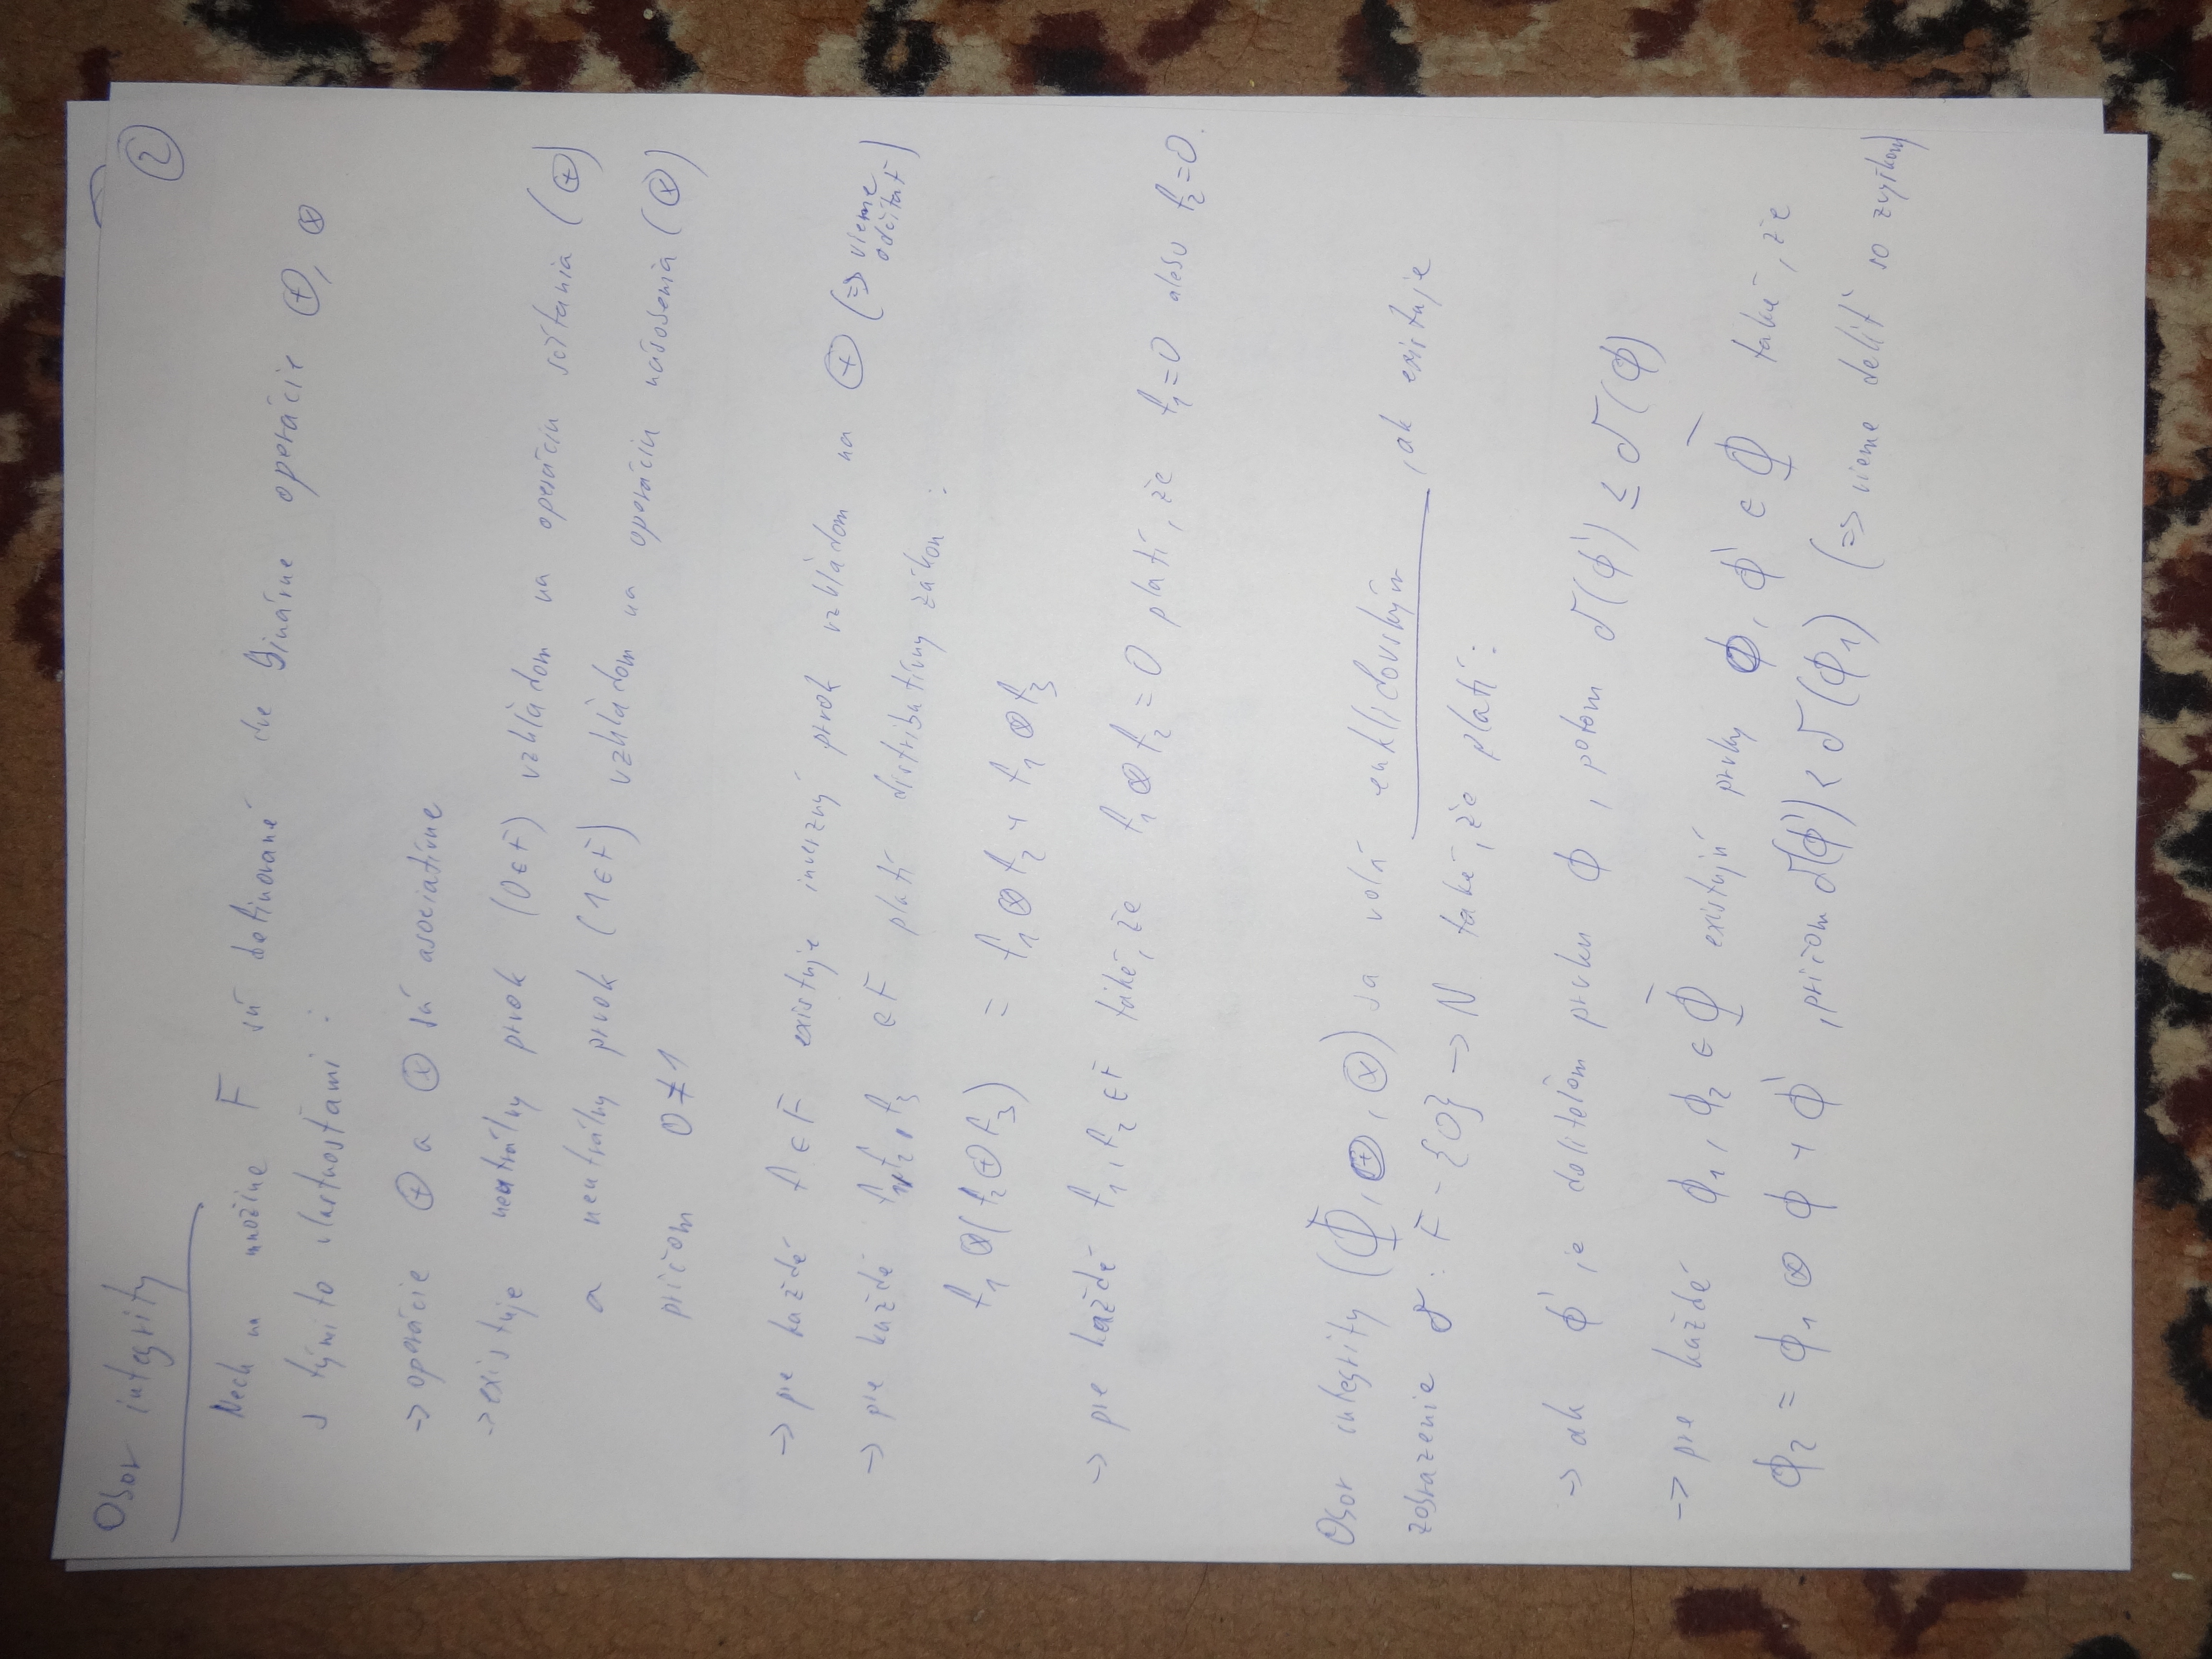 Obor integrity
②
Nech na množine F sú definované dve binárne operácie ⊕, ⊗
s týmito vlastnosťami :
-> operácie ⊕ a ⊗ sú asociatívne
-> existuje neutrálny prvok (0 ∈ F) vzhľadom na operáciu sčítania (⊕)
a neutrálny prvok (1 ∈ F) vzhľadom na operáciu násobenia (⊗)
pričom 0 ≠ 1
-> pre každé f ∈ F existuje inverzný prvok vzhľadom na ⊕ (=> vieme
odčítať)
-> pre každé f₁, f₂, f₃ ∈ F platí distributívny zákon :
f₁ ⊗ (f₂ ⊕ f₃) = f₁ ⊗ f₂ + f₁ ⊗ f₃
-> pre každé f₁, f₂ ∈ F také, že f₁ ⊗ f₂ = 0 platí, že f₁ = 0 alebo f₂ = 0.
Obor integrity (Φ, ⊕, ⊗) sa volá euklidovským, ak existuje
zobrazenie δ : F - {0} -> N také, že platí :
-> ak ϕ' je deliteľom prvku ϕ, potom δ(ϕ') ≤ δ(ϕ)
-> pre každé ϕ₁, ϕ₂ ∈ Φ existujú prvky ϕ, ϕ' ∈ Φ také, že
ϕ₂ = ϕ₁ ⊗ ϕ + ϕ', pričom δ(ϕ') < δ(ϕ₁) (=> vieme deliť so zvyškom)